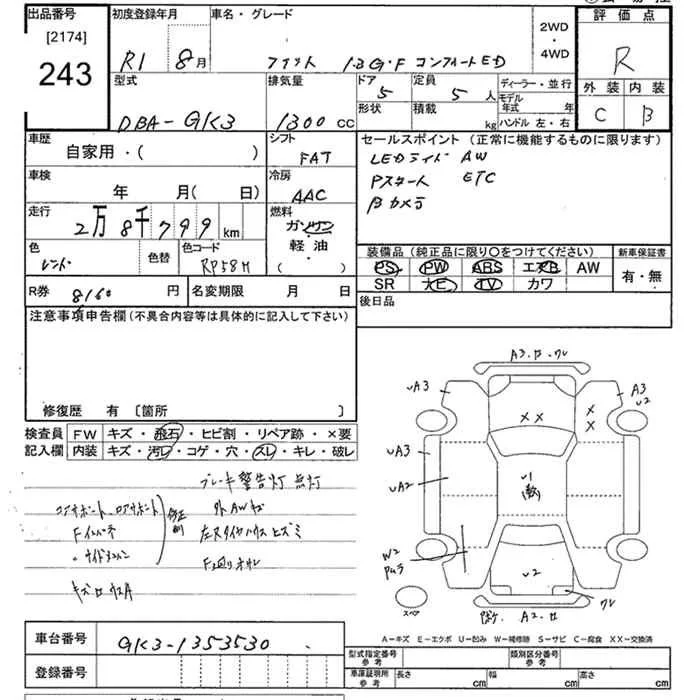 出品番号
[2174]
243
初度登録年月 車名・グレード
R1 8月 フィット 1.3G・F コンフォートED
2WD
・
4WD
評価点
R
外装 内装
C B
型式 排気量 ドア 定員 ディーラー・並行
5 5人 モデル年式 年
DBA-GK3 1300cc 形状 積載 kg ハンドル 左・右
車歴 シフト
自家用・( ) FAT
車検 冷房
年 月( 日) AAC
走行 燃料
2万8千799km ガソリン
・
軽油
・
( )
色 色替 色コード
レッド RP58H
R券 8160 円 名変期限 月 日
セールスポイント (正常に機能するものに限ります)
LEDライト AW
Pスタート ETC
Bカメラ
装備品 (純正品に限り〇をつけてください) 新車保証書
PS PW ABS エアB AW 有・無
SR ナビ TV カワ
後日品
注意事項申告欄 (不具合内容等は具体的に記入して下さい)
修復歴 有 〔箇所 〕
検査員 FW キズ・飛石・ヒビ割・リペア跡・×要
記入欄 内装 キズ・汚レ・コゲ・穴・スレ・キレ・破レ
ブレーキ警告灯 点灯
コアサポート、ロアサポート
Fインパネ
・サイドメンバー
修正
外AWキズ
左スタイヤハウスヒズミ
F廻りオサレ
A3・ワレ
UA3
A3
U2
XX
X
X
UA3
UA2
U1
W2
U2
ワレ
A2
スペア
A-キズ E-エクボ U-凹み W-補修跡 S-サビ C-腐食 XX-交換済
車台番号 GK3-1353530
登録番号
型式指定番号 参考 類別区分番号 参考
車庫証明所 参考 長さ cm 幅 cm 高さ cm